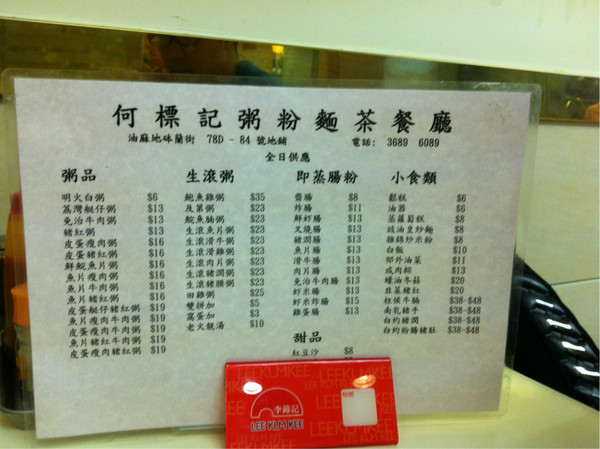 何標記粥粉麵茶餐廳
油麻地砵蘭街 78D - 84 號地鋪 電話: 3689 6089
全日供應
粥品
明火白粥 $6
荔灣艇仔粥 $13
免治牛肉粥 $13
豬紅粥 $13
皮蛋瘦肉粥 $16
皮蛋牛肉粥 $16
鮮鯇魚片粥 $16
魚片瘦肉粥 $16
魚片牛肉粥 $16
魚片豬紅粥 $16
皮蛋艇仔豬紅粥 $19
魚片瘦肉牛肉粥 $19
皮蛋瘦肉牛肉粥 $19
魚片豬紅牛肉粥 $19
皮蛋瘦肉豬紅粥 $19
生滾粥
鮑魚雞粥 $35
及第粥 $23
鯇魚腩粥 $23
生滾魚片粥 $23
生滾滑牛粥 $23
生滾滑雞粥 $23
生滾肉片粥 $23
生滾豬潤粥 $23
生滾豬腰粥 $23
田雞粥 $25
雙拼加 $5
窩蛋加 $3
老火靚湯 $10
即蒸腸粉
齋腸 $8
炸腸 $11
鮮蝦腸 $13
叉燒腸 $13
豬潤腸 $13
魚片腸 $13
滑牛腸 $13
肉片腸 $13
免治牛肉腸 $13
蝦米腸 $13
蝦米炸腸 $15
雞蛋腸 $13
甜品
紅豆沙 $8
小食類
鬆糕 $6
油器 $6
蒸蘿蔔糕 $8
豉油皇炒麵 $8
雜錦炒米粉 $8
白飯 $10
郊外油菜 $11
咸肉粽 $13
蠔油冬菇 $20
韮菜豬紅 $20
柱候牛腩 $38-$48
南乳豬手 $38-$48
白灼豬潤 $38-$48
白灼粉腸豬肚 $38-$48
李錦記
LEE KUM KEE